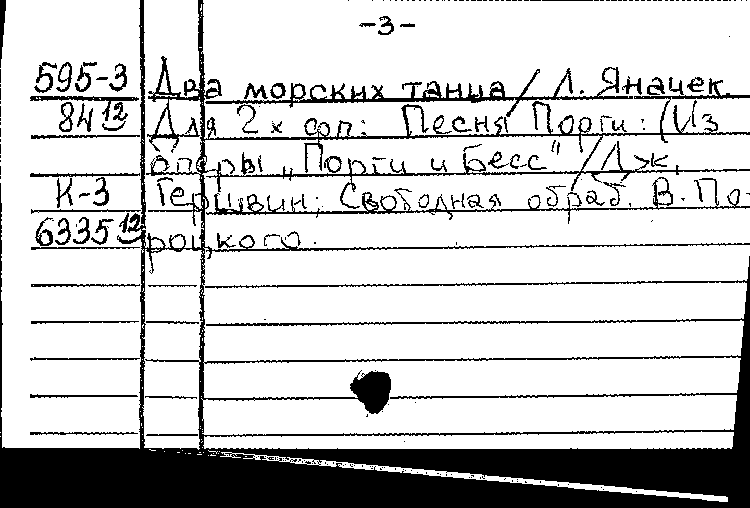 -3-
595-3 Два морских танца / Л. Яначек.
84 12 Для 2х фп: Песня Порги: (Из
оперы „Порги и Бесс" / Дж.
К-3 Гершвин; Свободная обраб. В. По-
6335 12 роцкого.